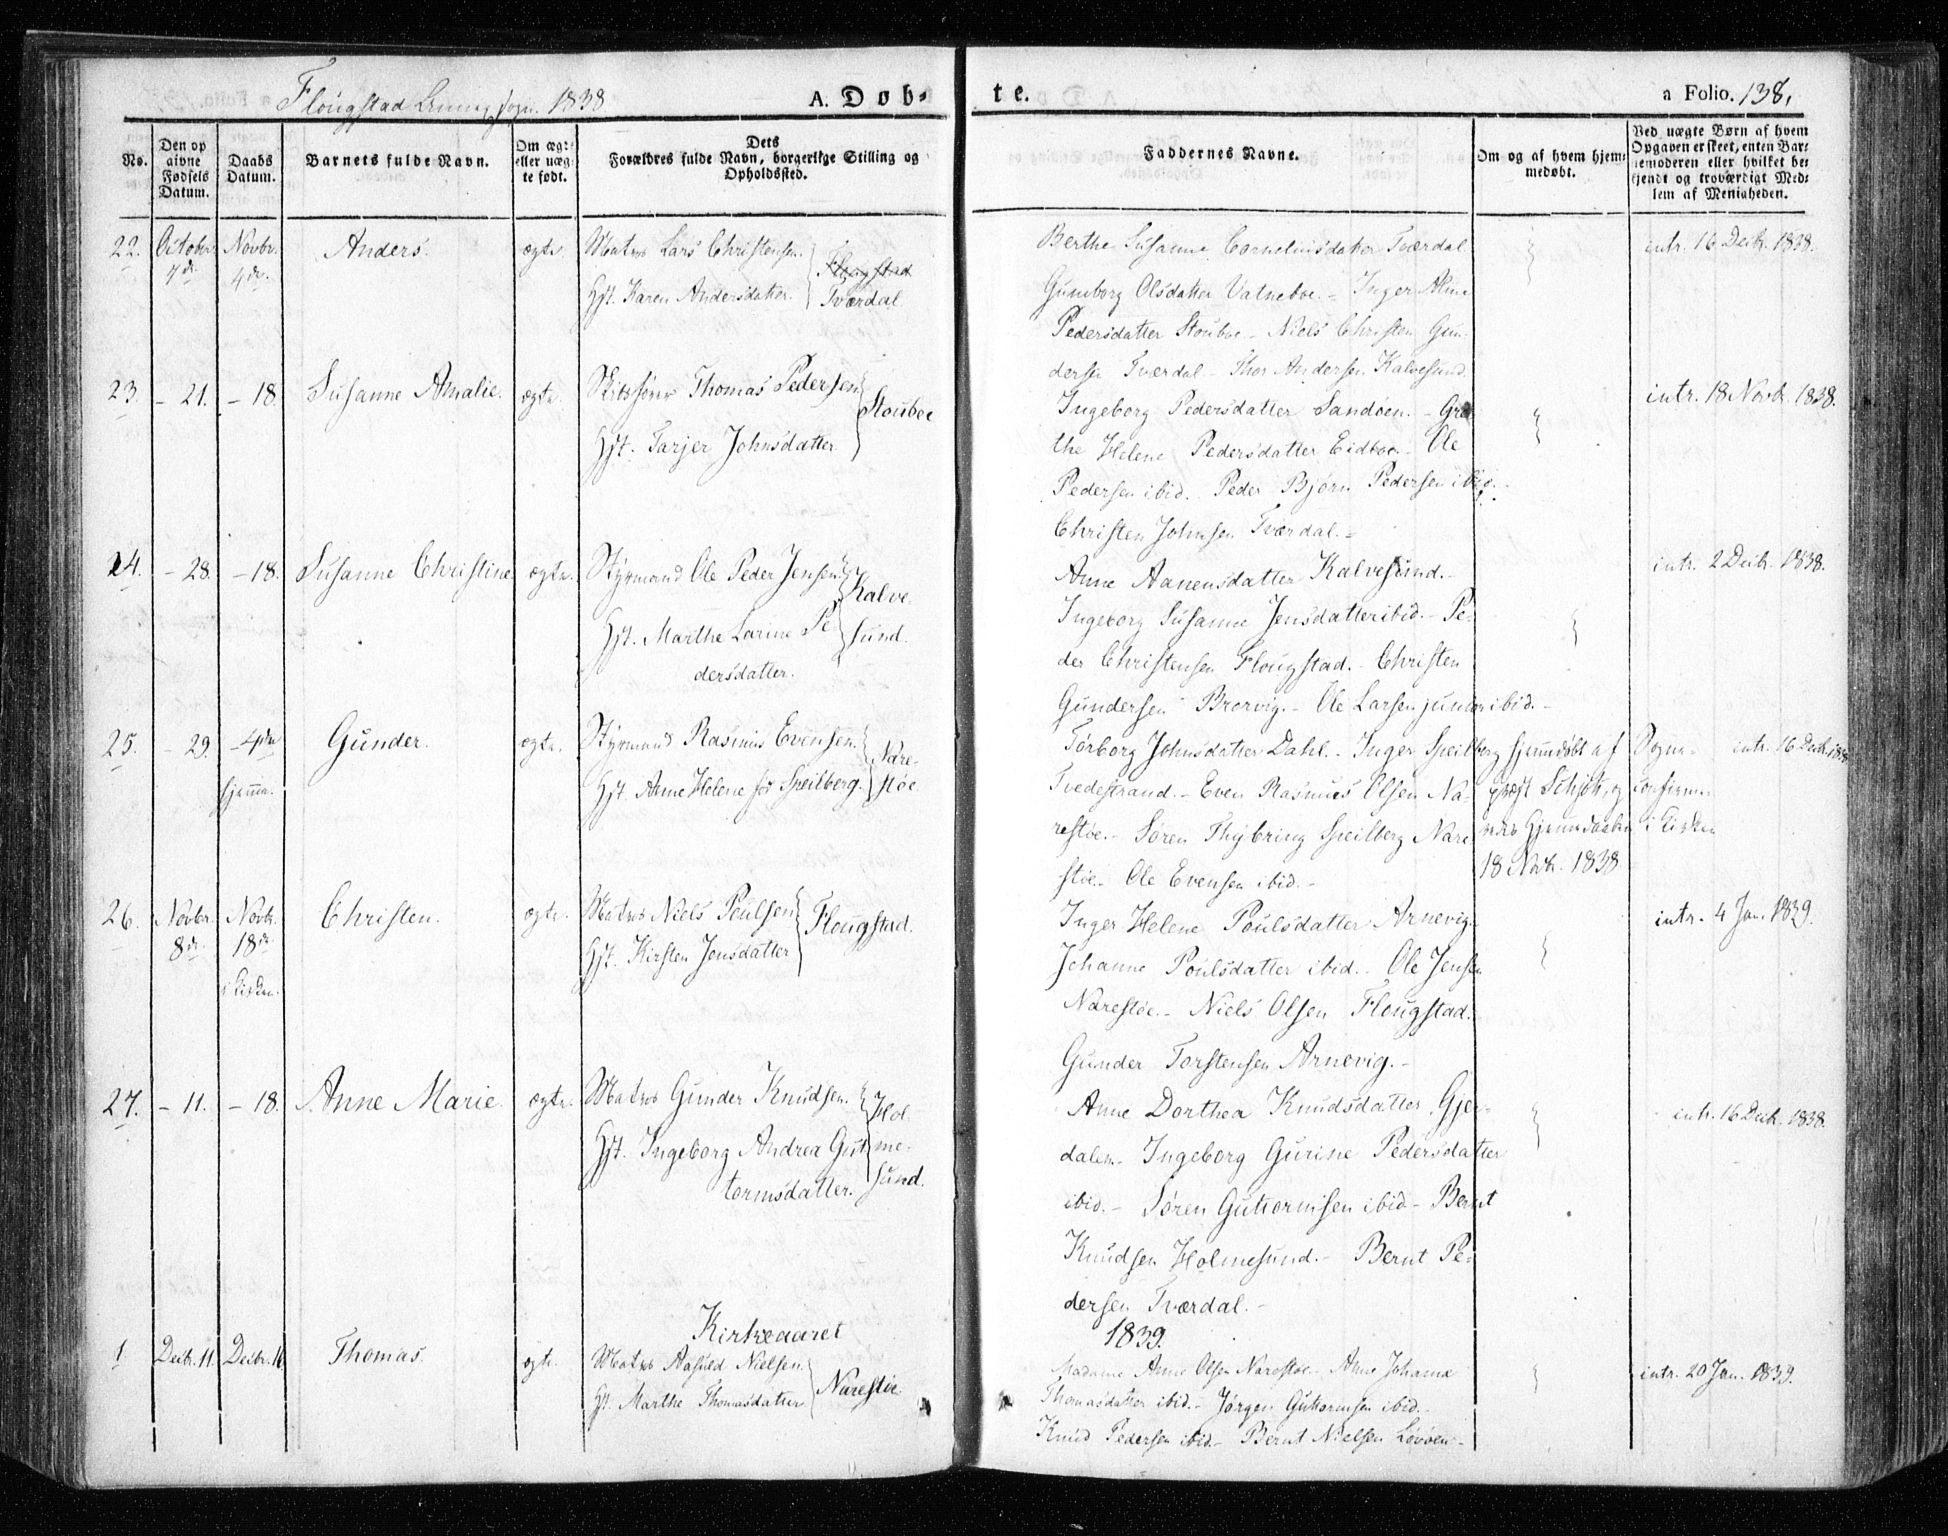 Flougstad Annexsogn. 1838
A. Døb-
te.
a Folio. 138,
No.
Den op
givne
Fødsels
Datum.
Daabs
Datum.
Barnets fulde Navn.
Om æg-
eller uæg-
te født.
Dets
Forældres fulde Navn, borgerlige Stilling og
Opholdssted.
Faddernes Navne.
Om og af hvem hjem-
medøbt.
Ved uægte Børn af hvem
Opgaven er skeet, enten Bar-
nemoderen eller hvilket be-
kjendt og troværdigt Med-
lem af Menigheden.
22. October 7de Novbr. 4de. Anders. ægte.
Matros Lars Christensen.
Hst. Karen Andersdatter.
Flougstad
Tværdal
Berthe Susanne Corneliusdatter Tværdal
Gunborg Olsdatter Vatneboe. - Inger Aline
Pedersdatter Stouboe - Niels Christen Gun-
dersen Tværdal - Thor Andersen Kalvesund.
intr. 16 Decbr. 1838.
23. - 21. - 18. Susanne Amalie. ægte.
Thomas Pedersen
Hst. Tarjer Johnsdatter.
Stouboe
Ingeborg Pedersdatter Sandøen. - Gre-
the Helene Pedersdatter Eidboe. - Ole
Pedersen ibid. Peder Bjørn Pedersen ibid.
Christen Johnsen Tværdal. -
intr. 18 Novbr. 1838.
24. - 28. - 18. Susanne Christine ægte.
Styrmand Ole Peder Jensen.
Hst. Marthe Larine Pe-
dersdatter.
Kalve-
sund.
Anne Aanensdatter Kalvesund. -
Ingeborg Susanne Jensdatter ibid. - Pe-
der Christensen Flougstad. - Christen
Gundersen Brorvig. - Ole Larsen junior ibid. -
intr. 2 Decbr. 1838.
25. - 29. - 4de hjemme. Gunder. ægte.
Styrmand Rasmus Evensen.
Hst. Anne Helene f. Speilberg.
Nare-
støe
Torborg Johnsdatter Dahl. - Inger Speilberg
Tvedestrand. - Even Rasmus Olsen Na-
restøe. - Søren Thybring Speilberg Nare-
støe. Ole Evensen ibid. -
hjemmedøbt af Sogne-
præst Schiøtz, og confirme-
res Hjemmedaaben i Kirken
18 Novbr. 1838
intr. 16 Decbr. 1838
26. Novbr. 8de. Novbr. 18de i Kirken. Christen. ægte.
Matros Niels Poulsen
Hst. Kirsten Jensdatter
Flougstad.
Inger Helene Poulsdatter Arnevig.
Johanne Poulsdatter ibid. - Ole Jensen
Narestøe. - Niels Olsen Flougstad.
Gunder Torstensen Arnevig. -
intr. 4 Jan. 1839.
27. - 11. - 18. Anne Marie. ægte.
Matros Gunder Knudsen.
Hst. Ingeborg Andrea Gut-
tormsdatter.
Hol-
me-
sund.
Anne Dorthea Knudsdatter Gjer-
dalen. - Ingeborg Gurine Pedersdatter
ibid. - Søren Guttormsen ibid - Bernt
Knudsen Holmesund. - Bernt Pe-
dersen Tværdal. -
intr. 16 Decbr. 1838.
Kirkeaaret
1839.
1. Decbr. 11. Decbr. 16 Thomas. ægte.
Matros Aasuld Nielsen.
Hst. Marthe Thomasdatter
Narestøe
Madame Anne Olsen Narestøe. Anne Johanne
Thomasdatter ibid. - Jørgen Guttormsen ibid. -
Knud Pedersen ibid. - Bernt Nielsen Løvøen -
intr. 20 Jan. 1839.